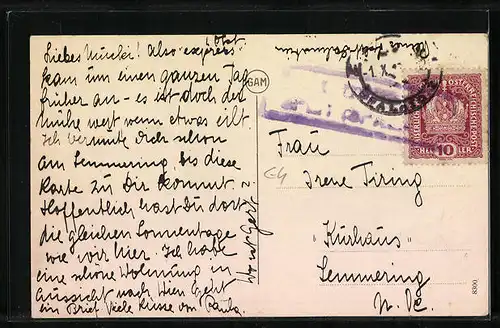 Liebes Mucki! Also express
kam um einen ganzen Tag
früher an - es ist doch der
Mühe wert wenn etwas eilt.
Ich vermute Dich schon
am Semmering, bis diese
Karte zu Dir kommt.
Hoffentlich hast Du dort
die gleichen Sonnentage
wie wir hier. Ich habe
eine schöne Wohnung in
Aussicht nach Hier geht
ein Brief. Viele Küsse von Paula
GAM
Frau
Irene Tiring
„Kurhaus"
Semmering
N. Ö.
10
HELLER
8300